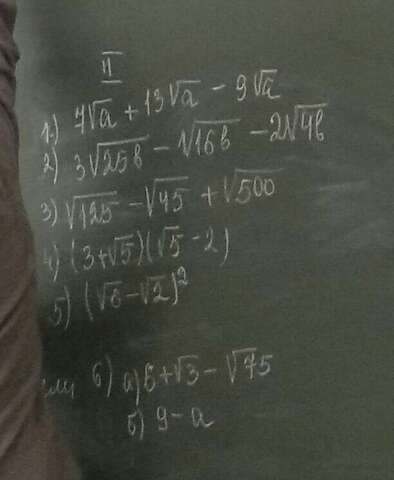 II
1) 7√a + 13√a - 9√a
2) 3√25в - √16в - 2√4в
3) √125 - √45 + √500
4) (3+√5)(√5-2)
5) (√8-√2)²
6) а) в+√3 - √75
б) 9-а